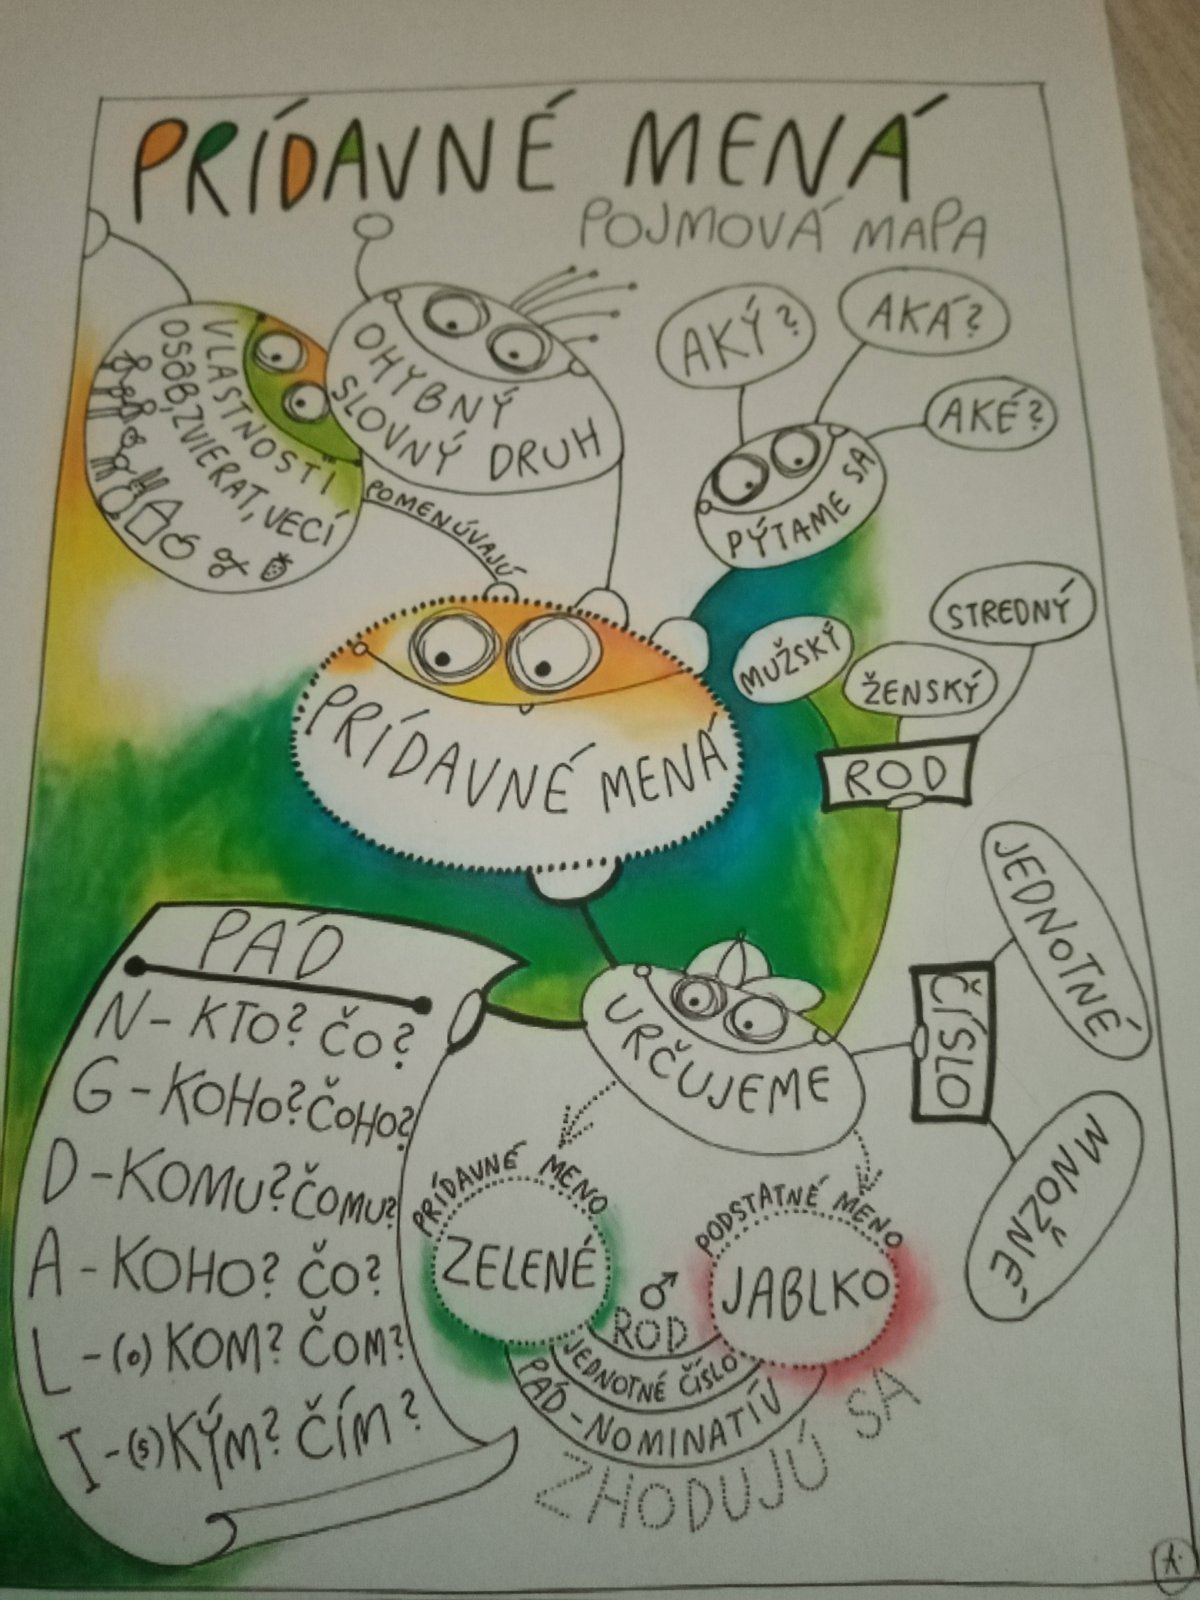 PRÍDAVNÉ MENÁ
POJMOVÁ MAPA
VLASTNOSTI
OSÔB, ZVIERAT, VECÍ
OHYBNÝ
SLOVNÝ DRUH
AKÝ?
AKÁ?
AKÉ?
PÝTAME SA
POMENÚVAJÚ
PRÍDAVNÉ MENÁ
MUŽSKÝ
ŽENSKÝ
STREDNÝ
ROD
JEDNOTNÉ
ČÍSLO
MNOŽNÉ
URČUJEME
PÁD
N - KTO? ČO?
G - KOHO? ČOHO?
D - KOMU? ČOMU?
A - KOHO? ČO?
L - (O) KOM? ČOM?
I - (S) KÝM? ČÍM?
PRÍDAVNÉ MENO
ZELENÉ
PODSTATNÉ MENO
JABLKO
♂
ROD
JEDNOTNÉ ČÍSLO
PÁD - NOMINATÍV
ZHODUJÚ SA